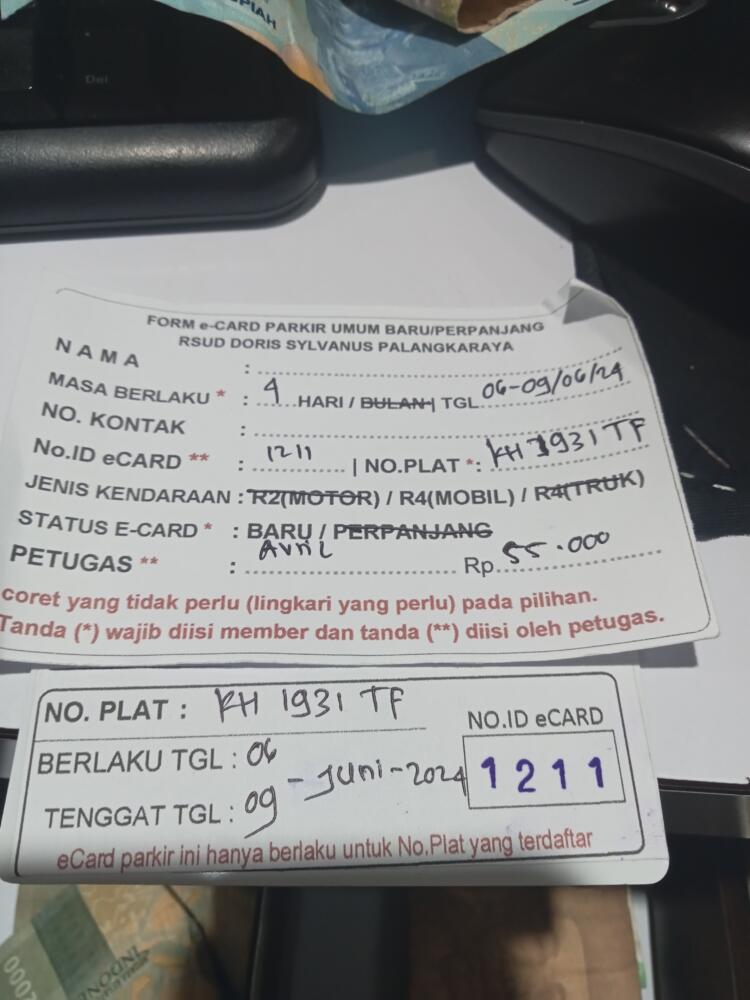 PIAH
Del
FORM e-CARD PARKIR UMUM BARU/PERPANJANG
RSUD DORIS SYLVANUS PALANGKARAYA
NAMA :
MASA BERLAKU * : 4 HARI / BULAN | TGL 06-09/06/24
NO. KONTAK :
No.ID eCARD ** : 1211 | NO.PLAT *: KH 1931 TF
JENIS KENDARAAN : R2(MOTOR) / R4(MOBIL) / R4(TRUK)
STATUS E-CARD * : BARU / PERPANJANG
PETUGAS ** : Avril Rp. 55.000
coret yang tidak perlu (lingkari yang perlu) pada pilihan.
Tanda (*) wajib diisi member dan tanda (**) diisi oleh petugas.
NO. PLAT : KH 1931 TF
NO.ID eCARD
1211
BERLAKU TGL : 06
- Juni - 2024
TENGGAT TGL : 09
eCard parkir ini hanya berlaku untuk No.Plat yang terdaftar